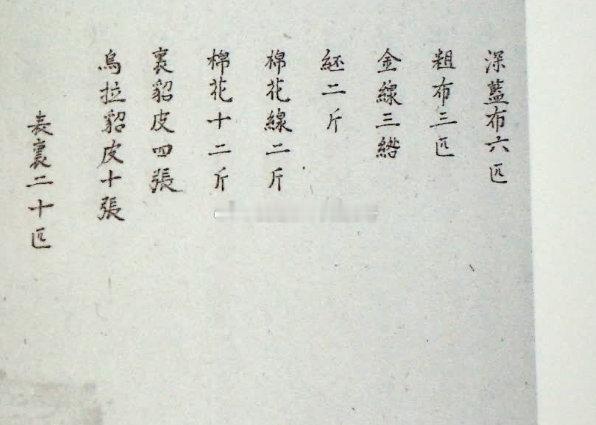 深藍布六匹
粗布三匹
金線三綹
絨二斤
棉花線二斤
棉花十二斤
裏貂皮四張
烏拉貂皮十張
表裏二十匹